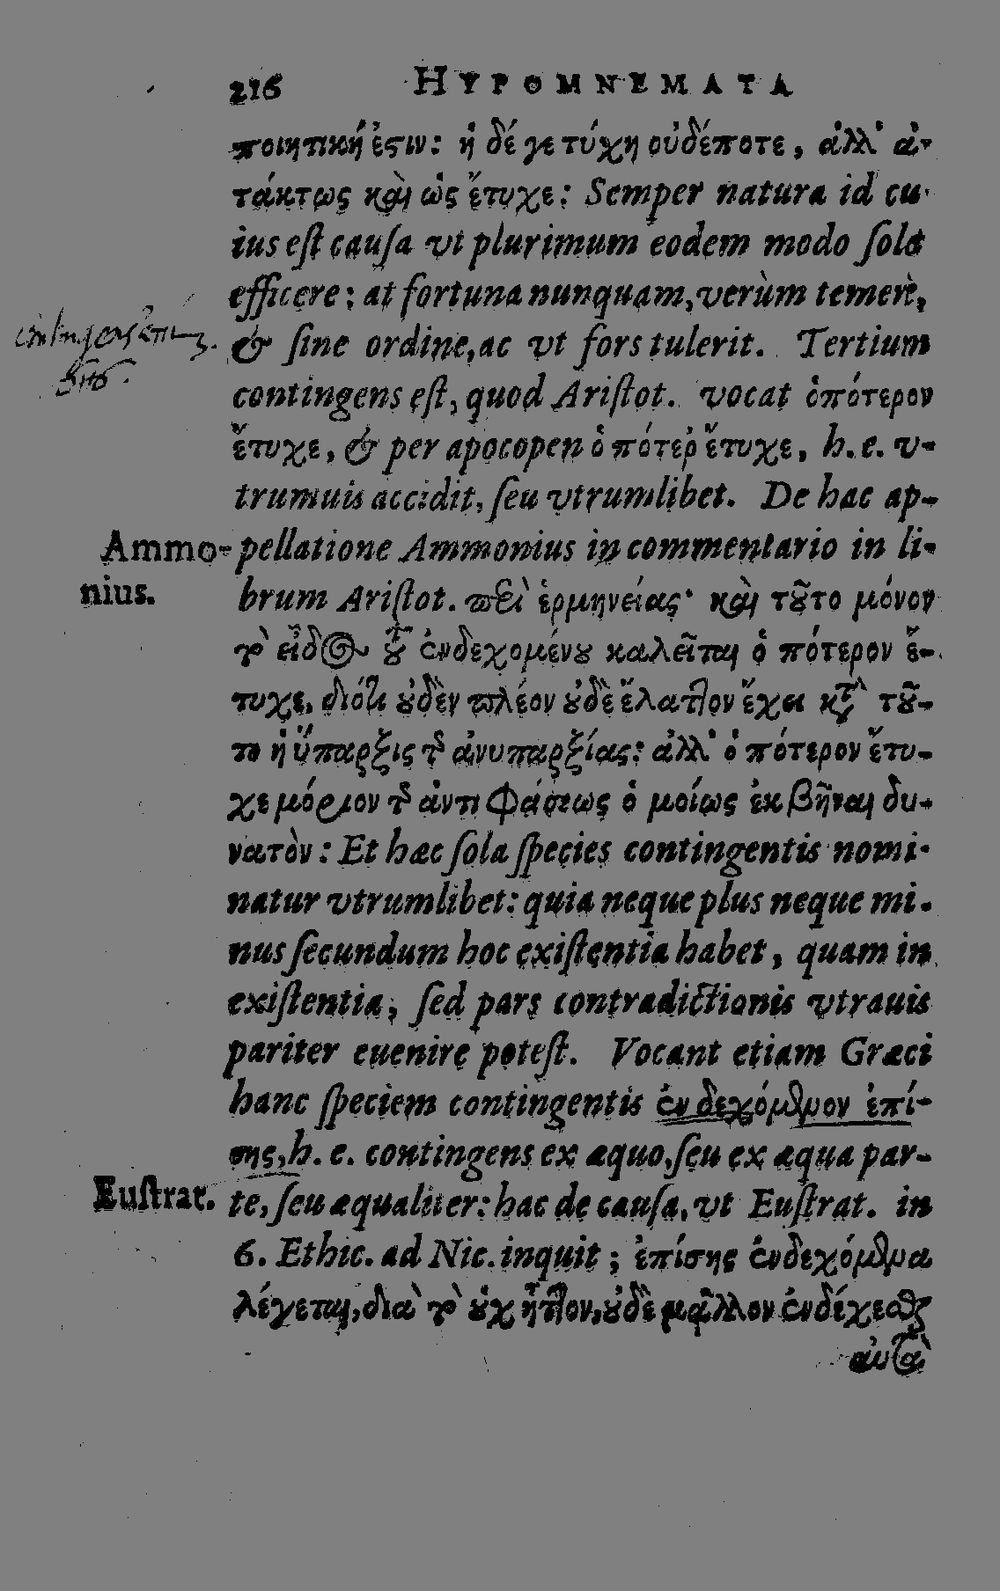 216 HYPOMNEMATA
ποιητική ἐστιν: ἡ δέ γε τύχη οὐδέποτε, ἀλλ' ἀ-
τάκτως καὶ ὡς ἔτυχε: Semper natura id cu-
ius eſt cauſa vt plurimum eodem modo ſolet
efficere; at fortuna nunquam, verùm temerè,
& ſine ordine, ac vt fors tulerit. Tertium
contingens eſt, quod Ariſtot. vocat ὁπότερον
ἔτυχε, & per apocopen ὁπότερ' ἔτυχε, h. e. v-
trumuis accidit, ſeu vtrumlibet. De hac ap-
Ammo- pellatione Ammonius in commentario in li-
nius. brum Ariſtot. περὶ ἑρμηνείας· καὶ τοῦτο μόνον
τὸ εἶδος τοῦ ἐνδεχομένου καλεῖται ὁ πότερον ἔ-
τυχε, διότι οὐδὲν πλέον οὐδὲ ἔλαττον ἔχει κατὰ τοῦ-
το ἡ ὕπαρξις τῆς ἀνυπαρξίας: ἀλλ' ὁ πότερον ἔτυ-
χε μόριον τῆς ἀντιφάσεως ὁμοίως ἐκβῆναι δυ-
νατὸν: Et hæc ſola ſpecies contingentis nomi-
natur vtrumlibet: quia neque plus neque mi-
nus ſecundum hoc exiſtentia habet, quam in
exiſtentia, ſed pars contradictionis vtrauis
pariter euenire poteſt. Vocant etiam Græci
hanc ſpeciem contingentis ἐνδεχόμενον ἐπί-
σης, h. e. contingens ex æquo, ſeu ex æqua par-
Euſtrat. te, ſeu æqualiter: hac de cauſa, vt Euſtrat. in
6. Ethic. ad Nic. inquit; ἐπίσης ἐνδεχόμενα
λέγεται, διὰ τὸ οὐχ ἧττον, οὐδὲ μᾶλλον ἐνδέχεσθαι
αὐτὰ